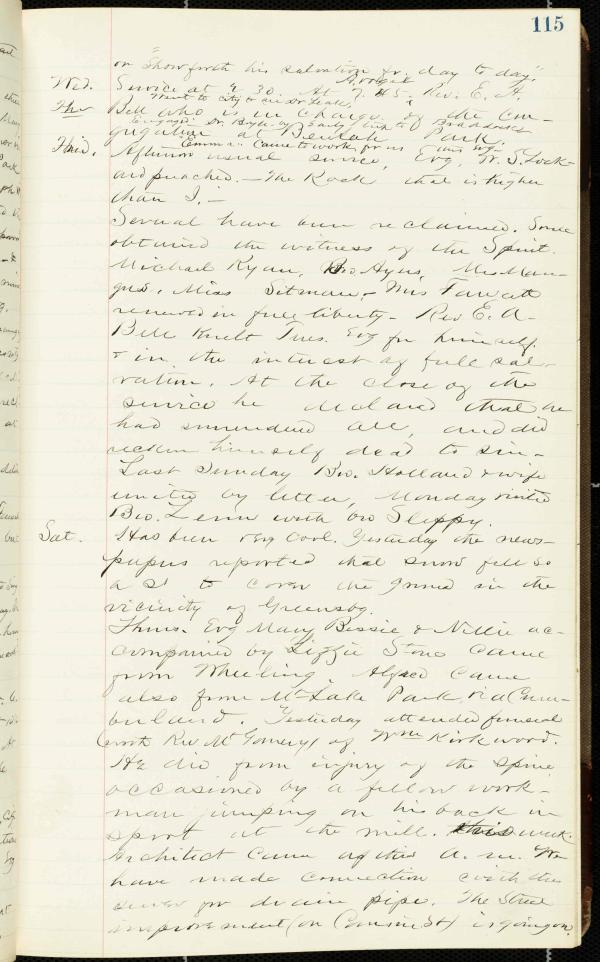 115
on "Show forth his salvation fr. day to day".
Wed. Service at 2.30. At 7.45 Rev. E. A.
Went to city to see Dr.
Thr Bell who is in charge of the con-
Engaged Dr. by
gregation at Beulah Park.
Emma came to work for us this
Third. Afternoon usual service, Evg. W. S. Lock-
ard preached. - The Rock that is higher
than I. -
Several have been reclaimed. Some
obtained the witness of the Spirit.
Michael Ryan, Bro Ayers, Mrs Man-
gus. Miss Sitman. Mrs Fawcett
renewed in full liberty - Rev E. A.
Bell knelt Tues. Evg for himself.
& in the interest of full sal-
vation. At the close of the
service he declared that he
had surrendered all, and did
reckon himself dead to sin -
Last Sunday Bro. Holland & wife
united by letter, Monday visited
Bro. Lenn with bro Sleppy.
Sat. Has been very cool. Yesterday the news-
papers reported that snow fell so
as to cover the ground in the
vicinity of Greensbg.
Thurs. Evg Mary Bessie & Nellie ac-
companied by Lizzie Stone came
from Wheeling, Alfred came
also from Mt Lake Park, via Cum-
berland. Yesterday attended funeral
(with Rev McGomery) of Wm Kirkwood.
He died from injury of the spine
occasioned by a fellow work-
man jumping on his back in
sport at the mill. this week.
Architect came after this a.m. We
have made connection with the
sewer for drain pipe. The Street
improvement (on Cousin St) is going on.